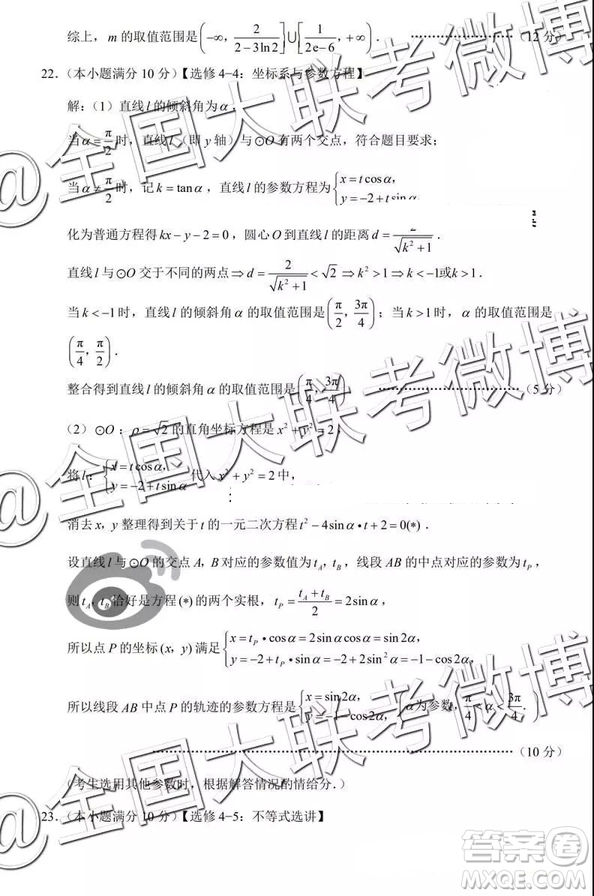 综上，m 的取值范围是(−∞, 2/(2−3ln2)]∪[1/(2e−6), +∞). ……………………（12 分）
22.（本小题满分 10 分）【选修 4-4：坐标系与参数方程】
解：（1）直线 l 的倾斜角为 α，
当 α=π/2 时，直线 l（即 y 轴）与⊙O 有两个交点，符合题目要求；
当 α≠π/2 时，记 k=tanα，直线 l 的参数方程为{x=tcosα, y=−2+tsinα
化为普通方程得 kx−y−2=0，圆心 O 到直线 l 的距离 d=2/√(k²+1)
直线 l 与⊙O 交于不同的两点⇒d=2/√(k²+1)<√2⇒k²>1⇒k<−1或k>1.
当 k<−1 时，直线 l 的倾斜角 α 的取值范围是(π/2, 3π/4)；当 k>1 时，直线 l 的倾斜角 α 的取值范围是
(π/4, π/2).
整合得到直线 l 的倾斜角 α 的取值范围是(π/4, 3π/4) ……………………（5 分）
（2）⊙O：ρ=√2 的直角坐标方程是 x²+y²=2，
将 l：{x=tcosα, y=−2+tsinα 代入 x²+y²=2 中，
消去 x, y 整理得到关于 t 的一元二次方程 t²−4sinα•t+2=0(*).
设直线 l 与⊙O 的交点 A, B 对应的参数值为 t_A, t_B，线段 AB 的中点对应的参数值为 t_P，
则 t_A, t_B 恰好是方程(*)的两个实根，t_P=(t_A+t_B)/2=2sinα，
所以点 P 的坐标(x, y)满足{x=t_P•cosα=2sinαcosα=sin2α, y=−2+t_P•sinα=−2+2sin²α=−1−cos2α,
所以线段 AB 中点 P 的轨迹的参数方程是{x=sin2α, y=−1−cos2α,(α为参数, π/4<α<3π/4).
……………………（10 分）
（考生选用其他参数时，根据解答情况酌情给分.）
23.（本小题满分 10 分）【选修 4-5：不等式选讲】
@全国大联考微博
@全国大联考微博
@全国大联考微博
答案圈
MXQE.COM